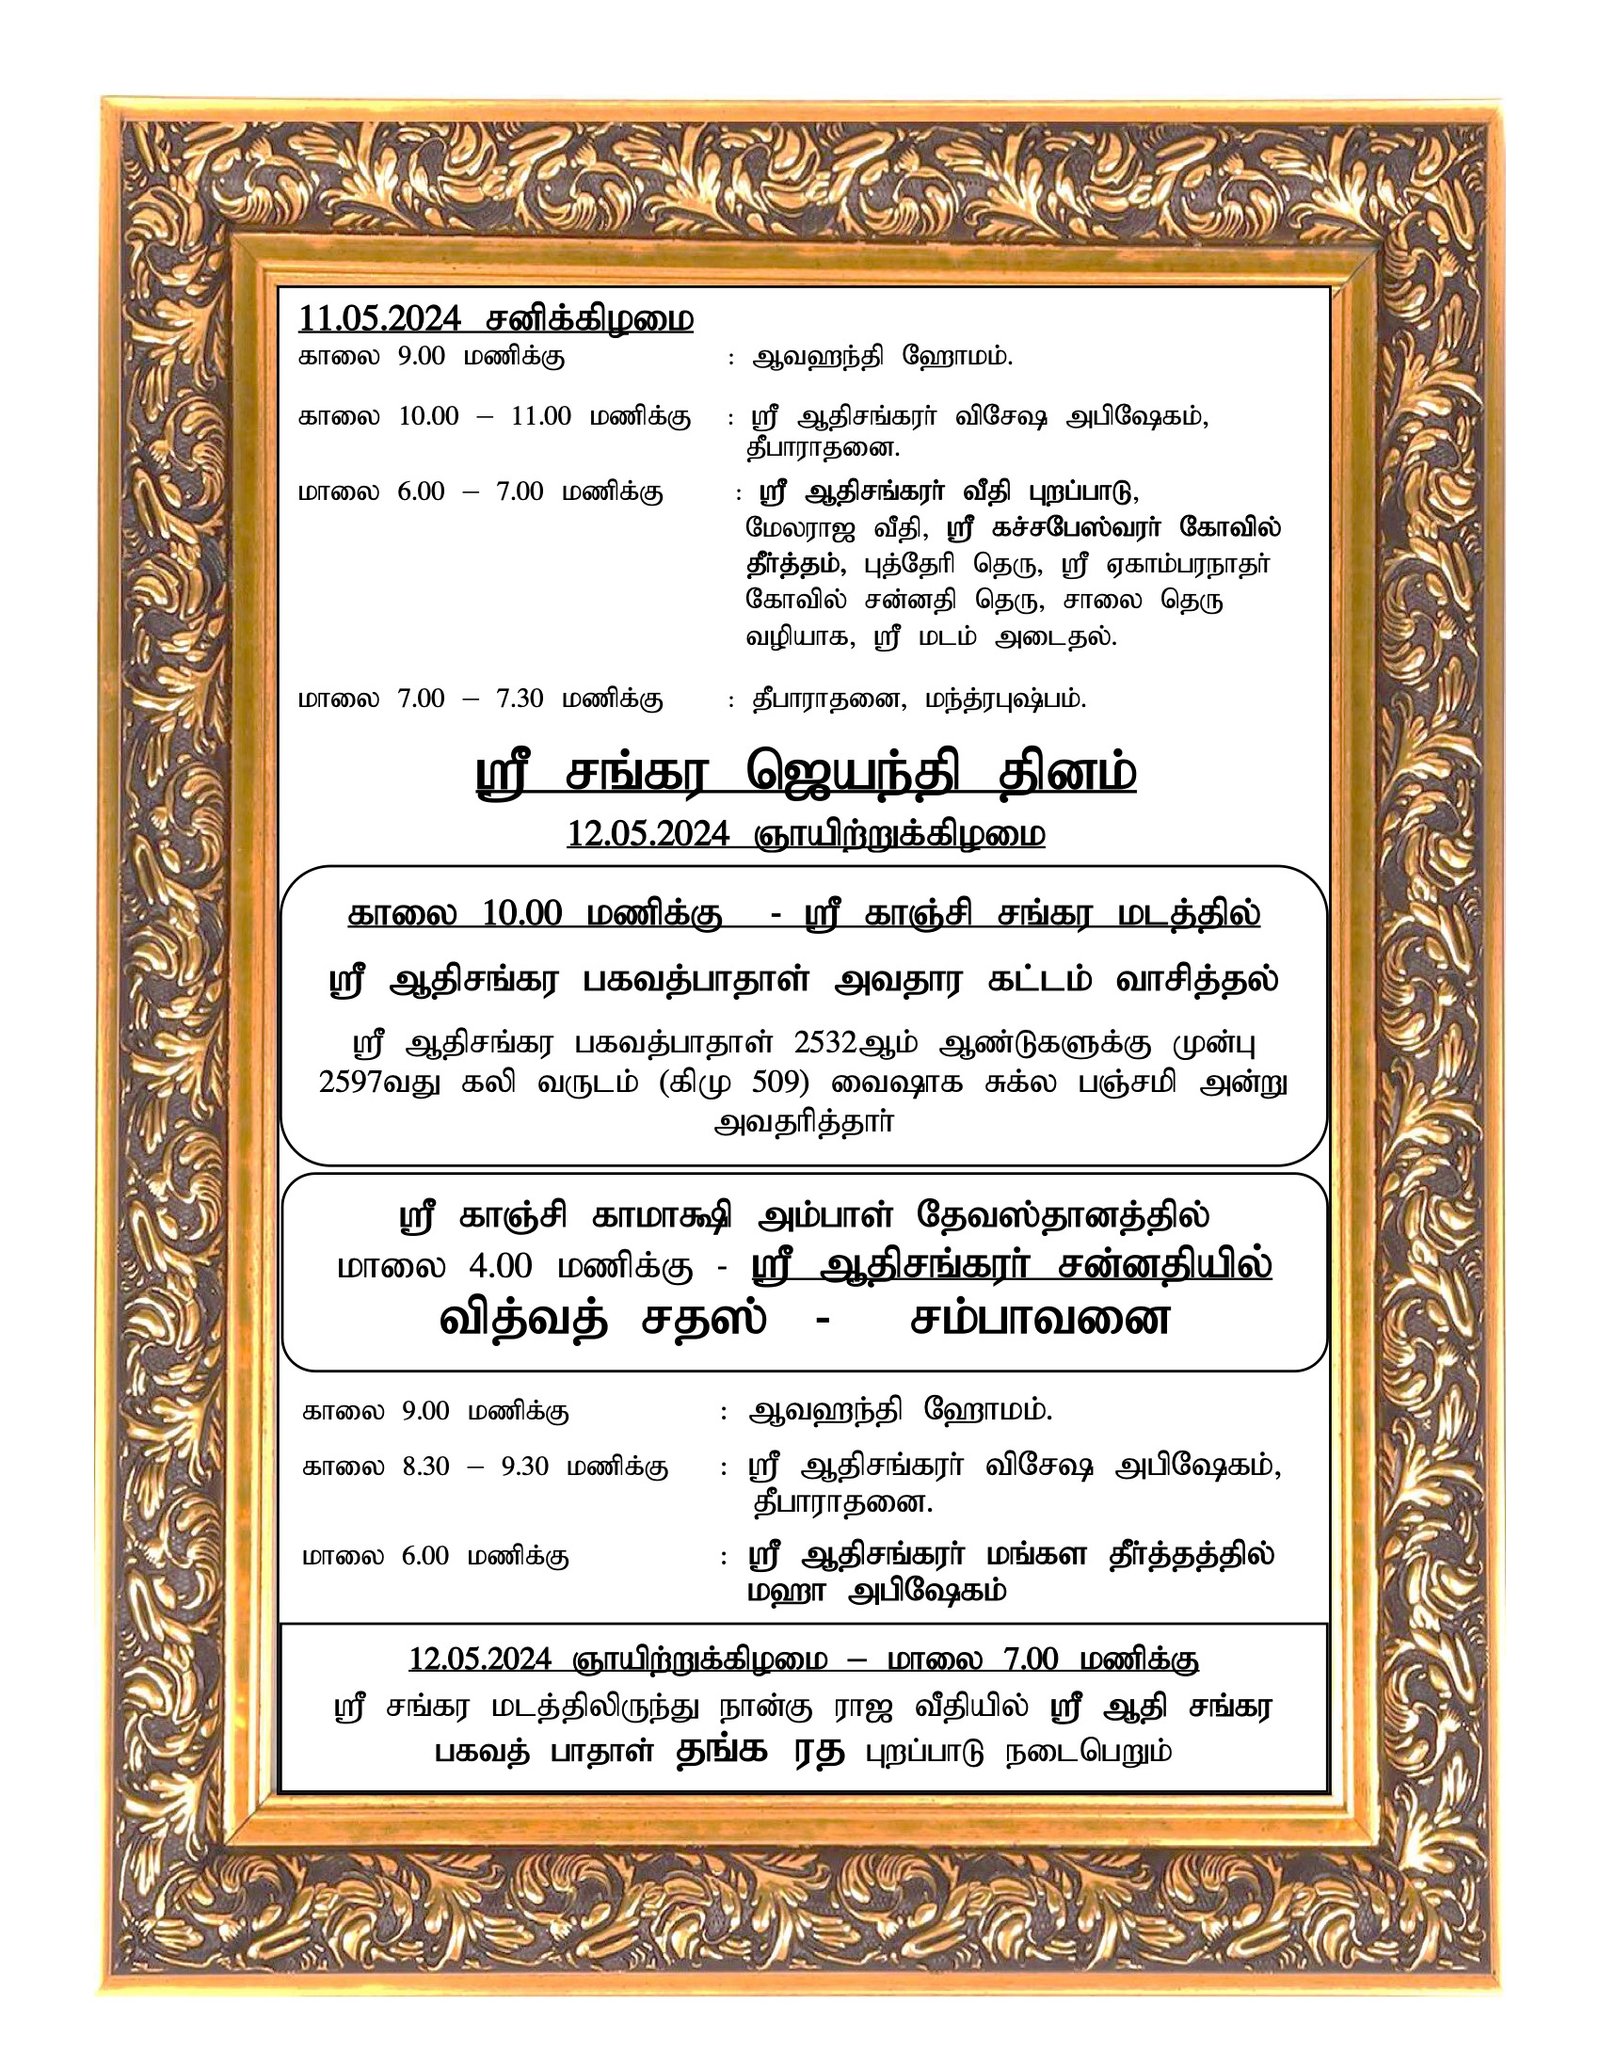 11.05.2024 சனிக்கிழமை
காலை 9.00 மணிக்கு : ஆவஹந்தி ஹோமம்.
காலை 10.00 – 11.00 மணிக்கு : ஸ்ரீ ஆதிசங்கரர் விசேஷ அபிஷேகம்,
தீபாராதனை.
மாலை 6.00 – 7.00 மணிக்கு : ஸ்ரீ ஆதிசங்கரர் வீதி புறப்பாடு,
மேலராஜ வீதி, ஸ்ரீ கச்சபேஸ்வரர் கோவில்
தீர்த்தம், புத்தேரி தெரு, ஸ்ரீ ஏகாம்பரநாதர்
கோவில் சன்னதி தெரு, சாலை தெரு
வழியாக, ஸ்ரீ மடம் அடைதல்.
மாலை 7.00 – 7.30 மணிக்கு : தீபாராதனை, மந்த்ரபுஷ்பம்.
ஸ்ரீ சங்கர ஜெயந்தி தினம்
12.05.2024 ஞாயிற்றுக்கிழமை
காலை 10.00 மணிக்கு - ஸ்ரீ காஞ்சி சங்கர மடத்தில்
ஸ்ரீ ஆதிசங்கர பகவத்பாதாள் அவதார கட்டம் வாசித்தல்
ஸ்ரீ ஆதிசங்கர பகவத்பாதாள் 2532ஆம் ஆண்டுகளுக்கு முன்பு
2597வது கலி வருடம் (கிமு 509) வைஷாக சுக்ல பஞ்சமி அன்று
அவதரித்தார்
ஸ்ரீ காஞ்சி காமாக்ஷி அம்பாள் தேவஸ்தானத்தில்
மாலை 4.00 மணிக்கு - ஸ்ரீ ஆதிசங்கரர் சன்னதியில்
வித்வத் சதஸ் - சம்பாவனை
காலை 9.00 மணிக்கு : ஆவஹந்தி ஹோமம்.
காலை 8.30 – 9.30 மணிக்கு : ஸ்ரீ ஆதிசங்கரர் விசேஷ அபிஷேகம்,
தீபாராதனை.
மாலை 6.00 மணிக்கு : ஸ்ரீ ஆதிசங்கரர் மங்கள தீர்த்தத்தில்
மஹா அபிஷேகம்
12.05.2024 ஞாயிற்றுக்கிழமை – மாலை 7.00 மணிக்கு
ஸ்ரீ சங்கர மடத்திலிருந்து நான்கு ராஜ வீதியில் ஸ்ரீ ஆதி சங்கர
பகவத் பாதாள் தங்க ரத புறப்பாடு நடைபெறும்